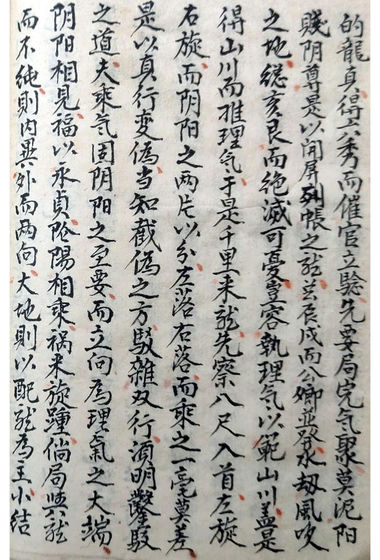 的龍真得六秀而催官立騐先要局完气聚莫泥阳
賤阴尊是以開屏列帳之龙若辰戌而公卿並發水刼風吹
之地縂亥艮而絶滅可憂豈容執理气以範山川盖是
得山川而推理气于是千里来龙先察八尺入首左旋
右旋而阴阳之两片以分左落右落而乘之一毫莫差
是以真行变僞当知截僞之方駁雜双行須明鑿駁
之道夫乘气固阴阳之至要而立向為理氣之大端
阴阳相見福以永貞阴陽相乘祸未旋踵倘局与龙
而不純則内異外而两向大地則以配龙為主小结